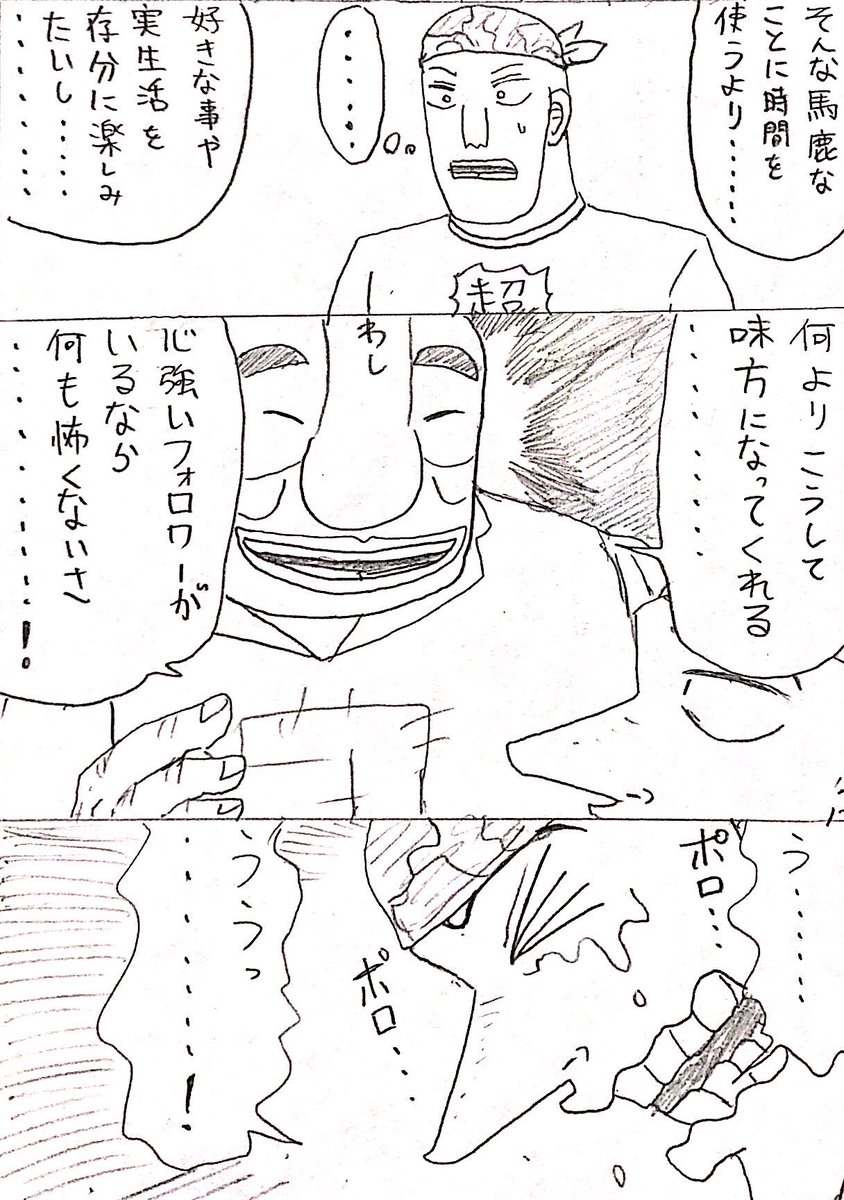 そんな馬鹿な
ことに時間を
使うより……
……
好きな事や
実生活を
存分に楽しみ
たいし……
……
超
何よりこうして
味方になってくれる
……
わし
心強いフォロワーが
いるなら
何も怖くないさ
………!
う……
ポロ…
ポロ…
ううっ
………!